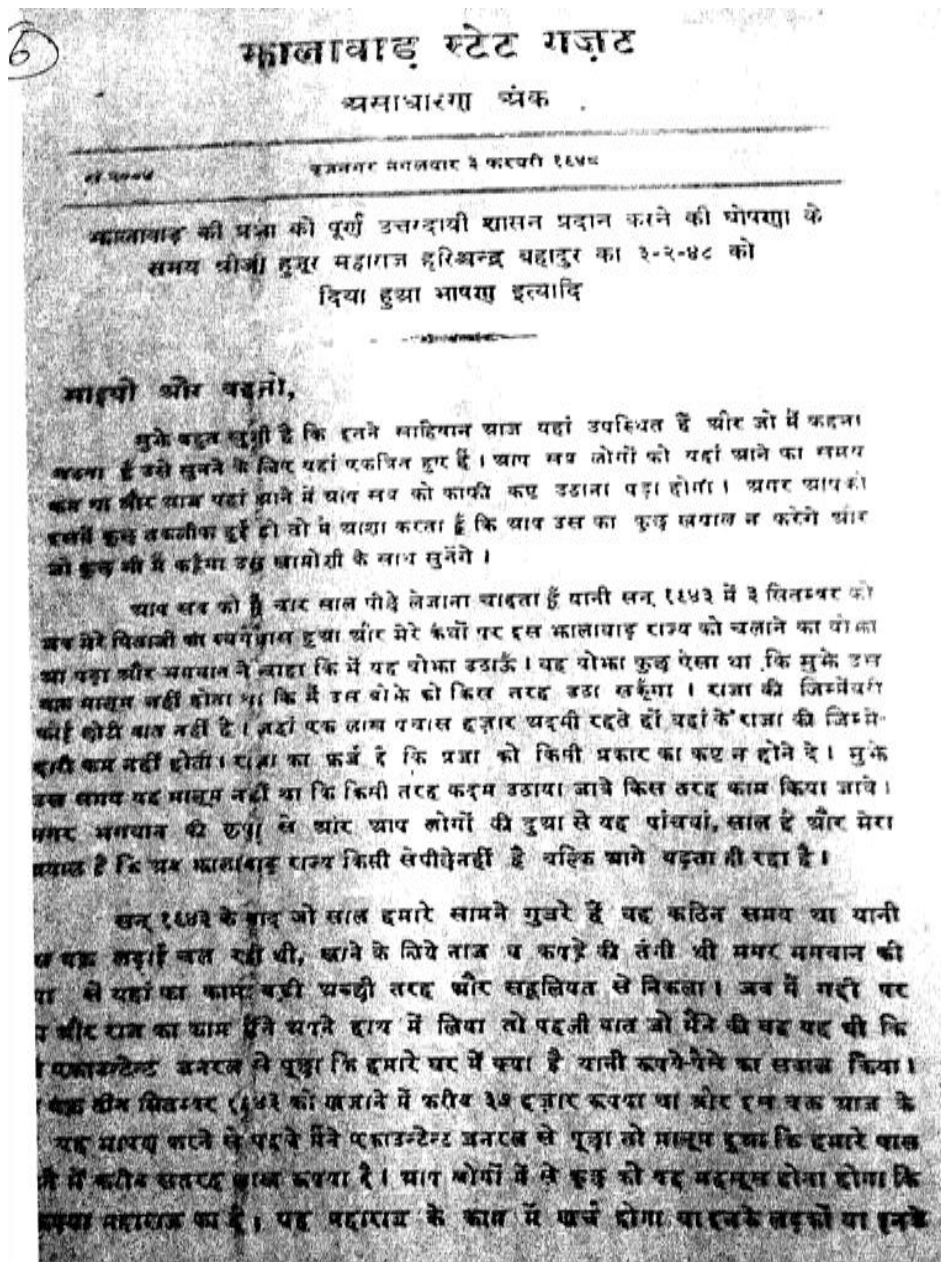 5
झालावाड़ स्टेट गज़ट
असाधारण अंक
बृजनगर मंगलवार ३ फरवरी १९४८
झालावाड़ की प्रजा को पूर्ण उत्तरदायी शासन प्रदान करने की घोषणा के
समय श्रीजी हुजूर महाराज हरिश्चन्द्र बहादुर का ३-२-४८ को
दिया हुआ भाषण इत्यादि
भाइयो और बहनो,
मुझे बहुत खुशी है कि इतने साहिबान आज यहां उपस्थित हैं और जो मैं कहना
चाहता हूँ उसे सुनने के लिए यहां एकत्रित हुए हैं। आप सब लोगों को यहां आने का समय
कम था और आज यहां आने में आप सब को काफी कष्ट उठाना पड़ा होगा। अगर आपको
इसमें कुछ तकलीफ हुई हो तो मैं आशा करता हूँ कि आप उस का कुछ खयाल न करेंगे और
जो कुछ भी मैं कहूँगा उसे खामोशी के साथ सुनेंगे।
आप सब को मैं चार साल पीछे लेजाना चाहता हूँ यानी सन् १९४३ में ३ सितम्बर को
जब मेरे पिताजी का स्वर्गवास हुआ और मेरे कंधों पर इस झालावाड़ राज्य को चलाने का बोझा
आ पड़ा और भगवान ने चाहा कि मैं यह बोझा उठाऊँ। यह बोझा कुछ ऐसा था कि मुझे उस
वक्त मालूम नहीं होता था कि मैं उस बोझे को किस तरह उठा सकूँगा। राजा की जिम्मेंवारी
कोई छोटी बात नहीं है। जहां एक लाख पचास हज़ार आदमी रहते हों वहां के राजा की जिम्मे-
दारी कम नहीं होती। राजा का फ़र्ज है कि प्रजा को किसी प्रकार का कष्ट न होने दे। मुझे
उस समय यह मालूम नहीं था कि किसी तरह कदम उठाया जावे किस तरह काम किया जावे।
मगर भगवान की कृपा से और आप लोगों की दुआ से यह पांचवां, साल है और मेरा
खयाल है कि अब झालावाड़ राज्य किसी से पीछे नहीं है बल्कि आगे बढ़ता ही रहा है।
सन् १९४३ के बाद जो साल हमारे सामने गुजरे हैं वह कठिन समय था यानी
लड़ाई चल रही थी, खाने के लिये नाज व कपड़े की तंगी थी मगर भगवान की
से यहां का काम बड़ी अच्छी तरह और सहूलियत से निकला। जब मैं गद्दी पर
और राज का काम मैंने अपने हाथ में लिया तो पहली बात जो मैंने की वह यह थी कि
एकाउन्टेन्ट जनरल से पूछा कि हमारे घर में क्या है यानी रूपये-पैसे का सवाल किया।
वक्त तीन सितम्बर १९४३ को खजाने में करीब ३७ हज़ार रूपया था और इस वक्त आज के
यह भाषण करने से पहले मैंने एकाउन्टेन्ट जनरल से पूछा तो मालूम हुआ कि हमारे पास
में करीब सतरह लाख रूपया है। आप लोगों में से कुछ को यह महसूस होता होगा कि
रूपया महाराज का है। यह महाराज के काम में खर्च होगा या इनके लड़कों या इनके